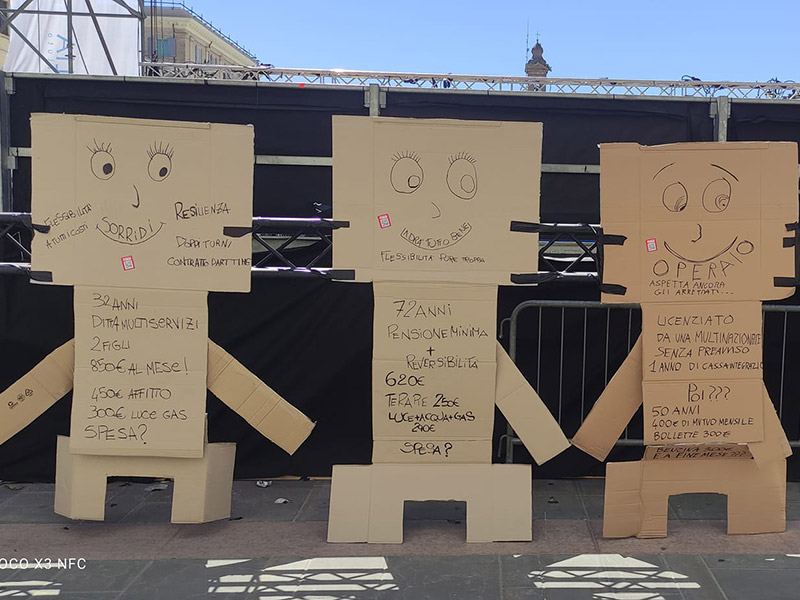 FLESSIBILITÀ
A TUTTI COSTI
SORRIDI
RESILIENZA
DOPPI TURNI
CONTRATTO PART TIME
32 ANNI
DITTA MULTISERVIZI
2 FIGLI
850€ AL MESE!
450€ AFFITTO
300€ LUCE GAS
SPESA?
ANDRÀ TUTTO BENE
FLESSIBILITÀ PURE TROPPA
72 ANNI
PENSIONE MINIMA
+
REVERSIBILITÀ
620€
250€
LUCE+ACQUA+GAS
290€
SPESA?
OPERAIO
ASPETTA ANCORA
GLI ARRETRATI...
LICENZIATO
DA UNA MULTINAZIONALE
SENZA PREAVVISO
1 ANNO DI CASSAINTEGRAZIO
POI???
50 ANNI
400€ DI MUTUO MENSILE
BOLLETTE 300€
BENZINA 300€
E A FINE MESE???
OCO X3 NFC